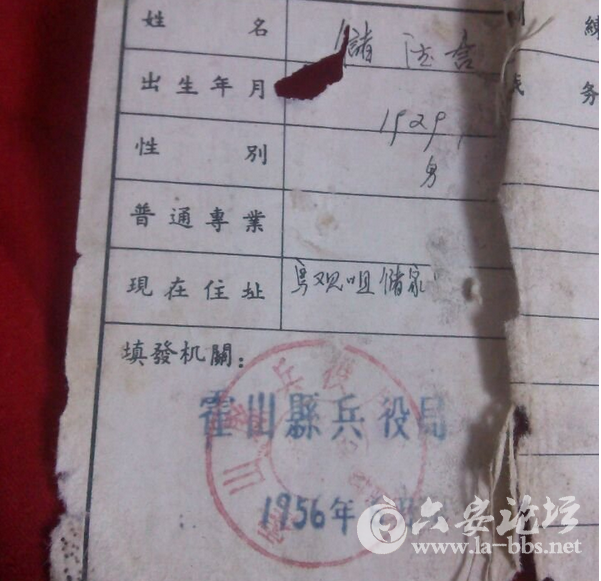 姓名 儲
出生年月 1929
性別 男
普通專業
現在住址 儲家
填發机關：
霍山縣兵役局
1956年
务
六安论坛
www.la-bbs.net